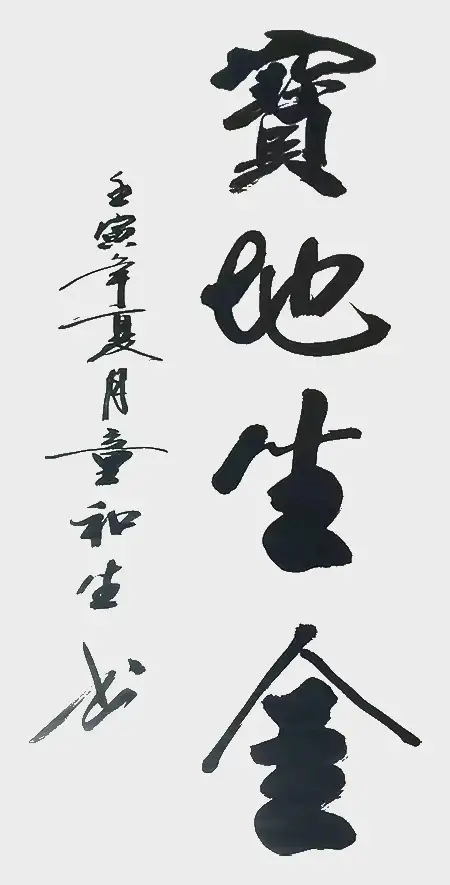 寶地生金
壬寅年夏月童和生书